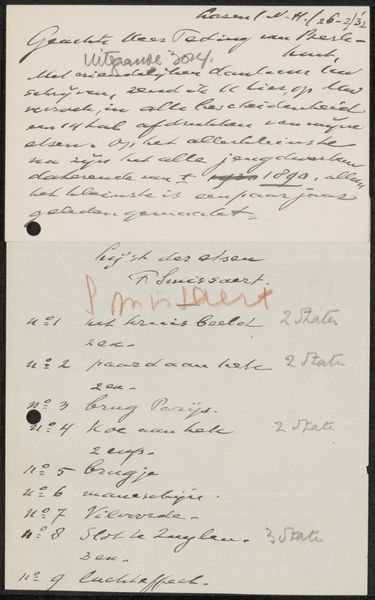 Losser (N.H.) 26-2/32
Geachte Heer Teding van Berk-
hout,
Uitgaande 3014.
Met vriendelijken dank voor Uw
schrijven, zend ik U hier, op Uw
verzoek, in alle bescheidenheid
een 14 tal afdrukken van mijne
etsen. Op het allerkleinste
na zijn het alle jeugdwerken
daterende van ± 1890, allen
het kleinste is een paar jaar
geleden gemaakt.
Lijst der etsen
F. Smissaert.
Smissaert
no 1 het kruisbeeld 2 Staten
2 ex.
no 2 paard aan hek 2 Staten
2 ex.
no 3 brug Parijs.
no 4 Koe aan hek 2 Staten
2 exp.
no 5 brugje
no 6 maneschijn.
no 7 Vilvoorde.
no 8 Slot te Zuylen. 3 Staten
3 ex.
no 9 luchteffect.